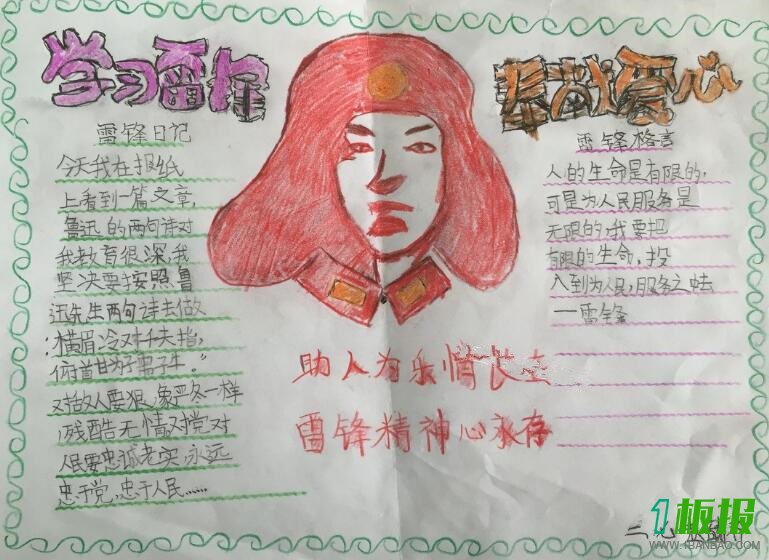 学习雷锋
奉献爱心
雷锋日记
今天我在报纸
上看到一篇文章,
鲁迅的两句诗对
我教育很深,我
坚决要按照鲁
迅先生两句诗去做
"横眉冷对千夫指,
俯首甘为孺子牛。"
对敌人要狠,象严冬一样
残酷无情对党对
人民要忠诚老实,永远
忠于党,忠于人民……
助人为乐情长在
雷锋精神心永存
雷锋格言
人的生命是有限的,
可是为人民服务是
无限的,我要把
有限的生命,投
入到为人民服务之中去
—雷锋
1板报
WWW.1BANBAO.COM